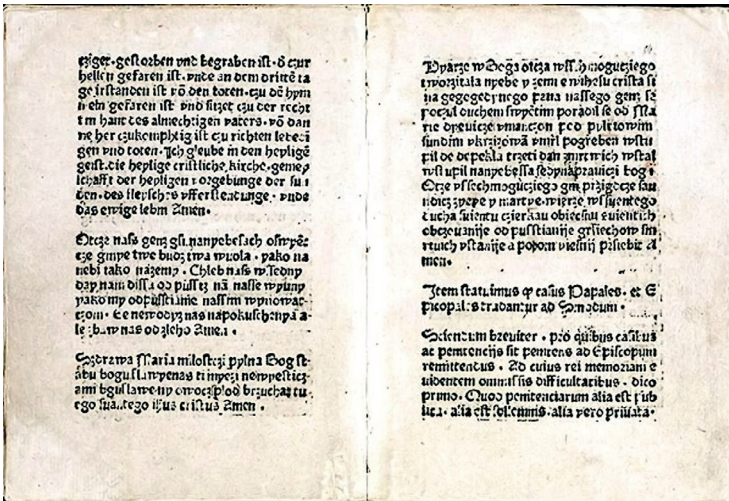 cziger·gestorben vnd begraben ist·d czur
hellen gefaren ist·vnde an dem dritte ta
ge irstanden ist vō den toten·czu dē hym
meln gefaren ist vnd sitzet czu der recht
hant des almechtigen vaters·vō dan
ne her czukomphtig ist czu richten
gen vnd toten·Ich gleube in den heyligē
geist·die heylige cristliche kirche·gemey
schafft der heyligen vorgebunge der
den·des fleysches vfferstendunge·vnde
das ewige lebm Amen·
Otcze nass genz gsi nanyebesach oswyēc
cze gmye twe budz twa wuola·yako na
nebi tako nazemy·Chleb nass wssedny
day nam dissa odpusscz nā nasse wyny
yako my odpusstiame nassim wynowat
czom·Ee newodyz nas napokuschenya a
le zbaw nas odzleho Amen·
Szdrzwa Maria milosczi pylna Bog s
tabu boguslawyenas ti myezi newyesticz
ami boguslaweny owocz ziwota
ego swantego ihus cristus Amen·
Wyarze w Boga otcza wssehmoguczego
stworzitala nyebe y zemi e wihesu crista si
na gegogedynego pana nassego genz se
poczul duchem swyetim porodil se od Ma
rie dyevicze vmanczon pod pylatowim
sundim vkrizowā vmrl pogreben wstu
pil do depekla trzeti dan zmrtwich wstal
wstupil nanyebessa sedy napravici bog
Otcze wssechmoguczego prziydcze sau
ndicz zyvye y martve·wierze wssvientego
ducha svientu czierkau obiecsku svientich
obczovanije odpusstianije grsiechow sm
rtvich vstanije a potom viesnij prsiebit A
men·
Item statuimus ꝙ casus Papales·et E
piscopales tradantur ad Synodum·
Sciendum breviter·pro quibus casibus
ac penitencijs sit penitens ad Episcopum
remittendus·Ad cuius rei memoriam e
uidentem omnissis difficultatibus·dico
primo·Quod penitenciarum alia est pub
lica·alia est solemnis·alia vero privata·